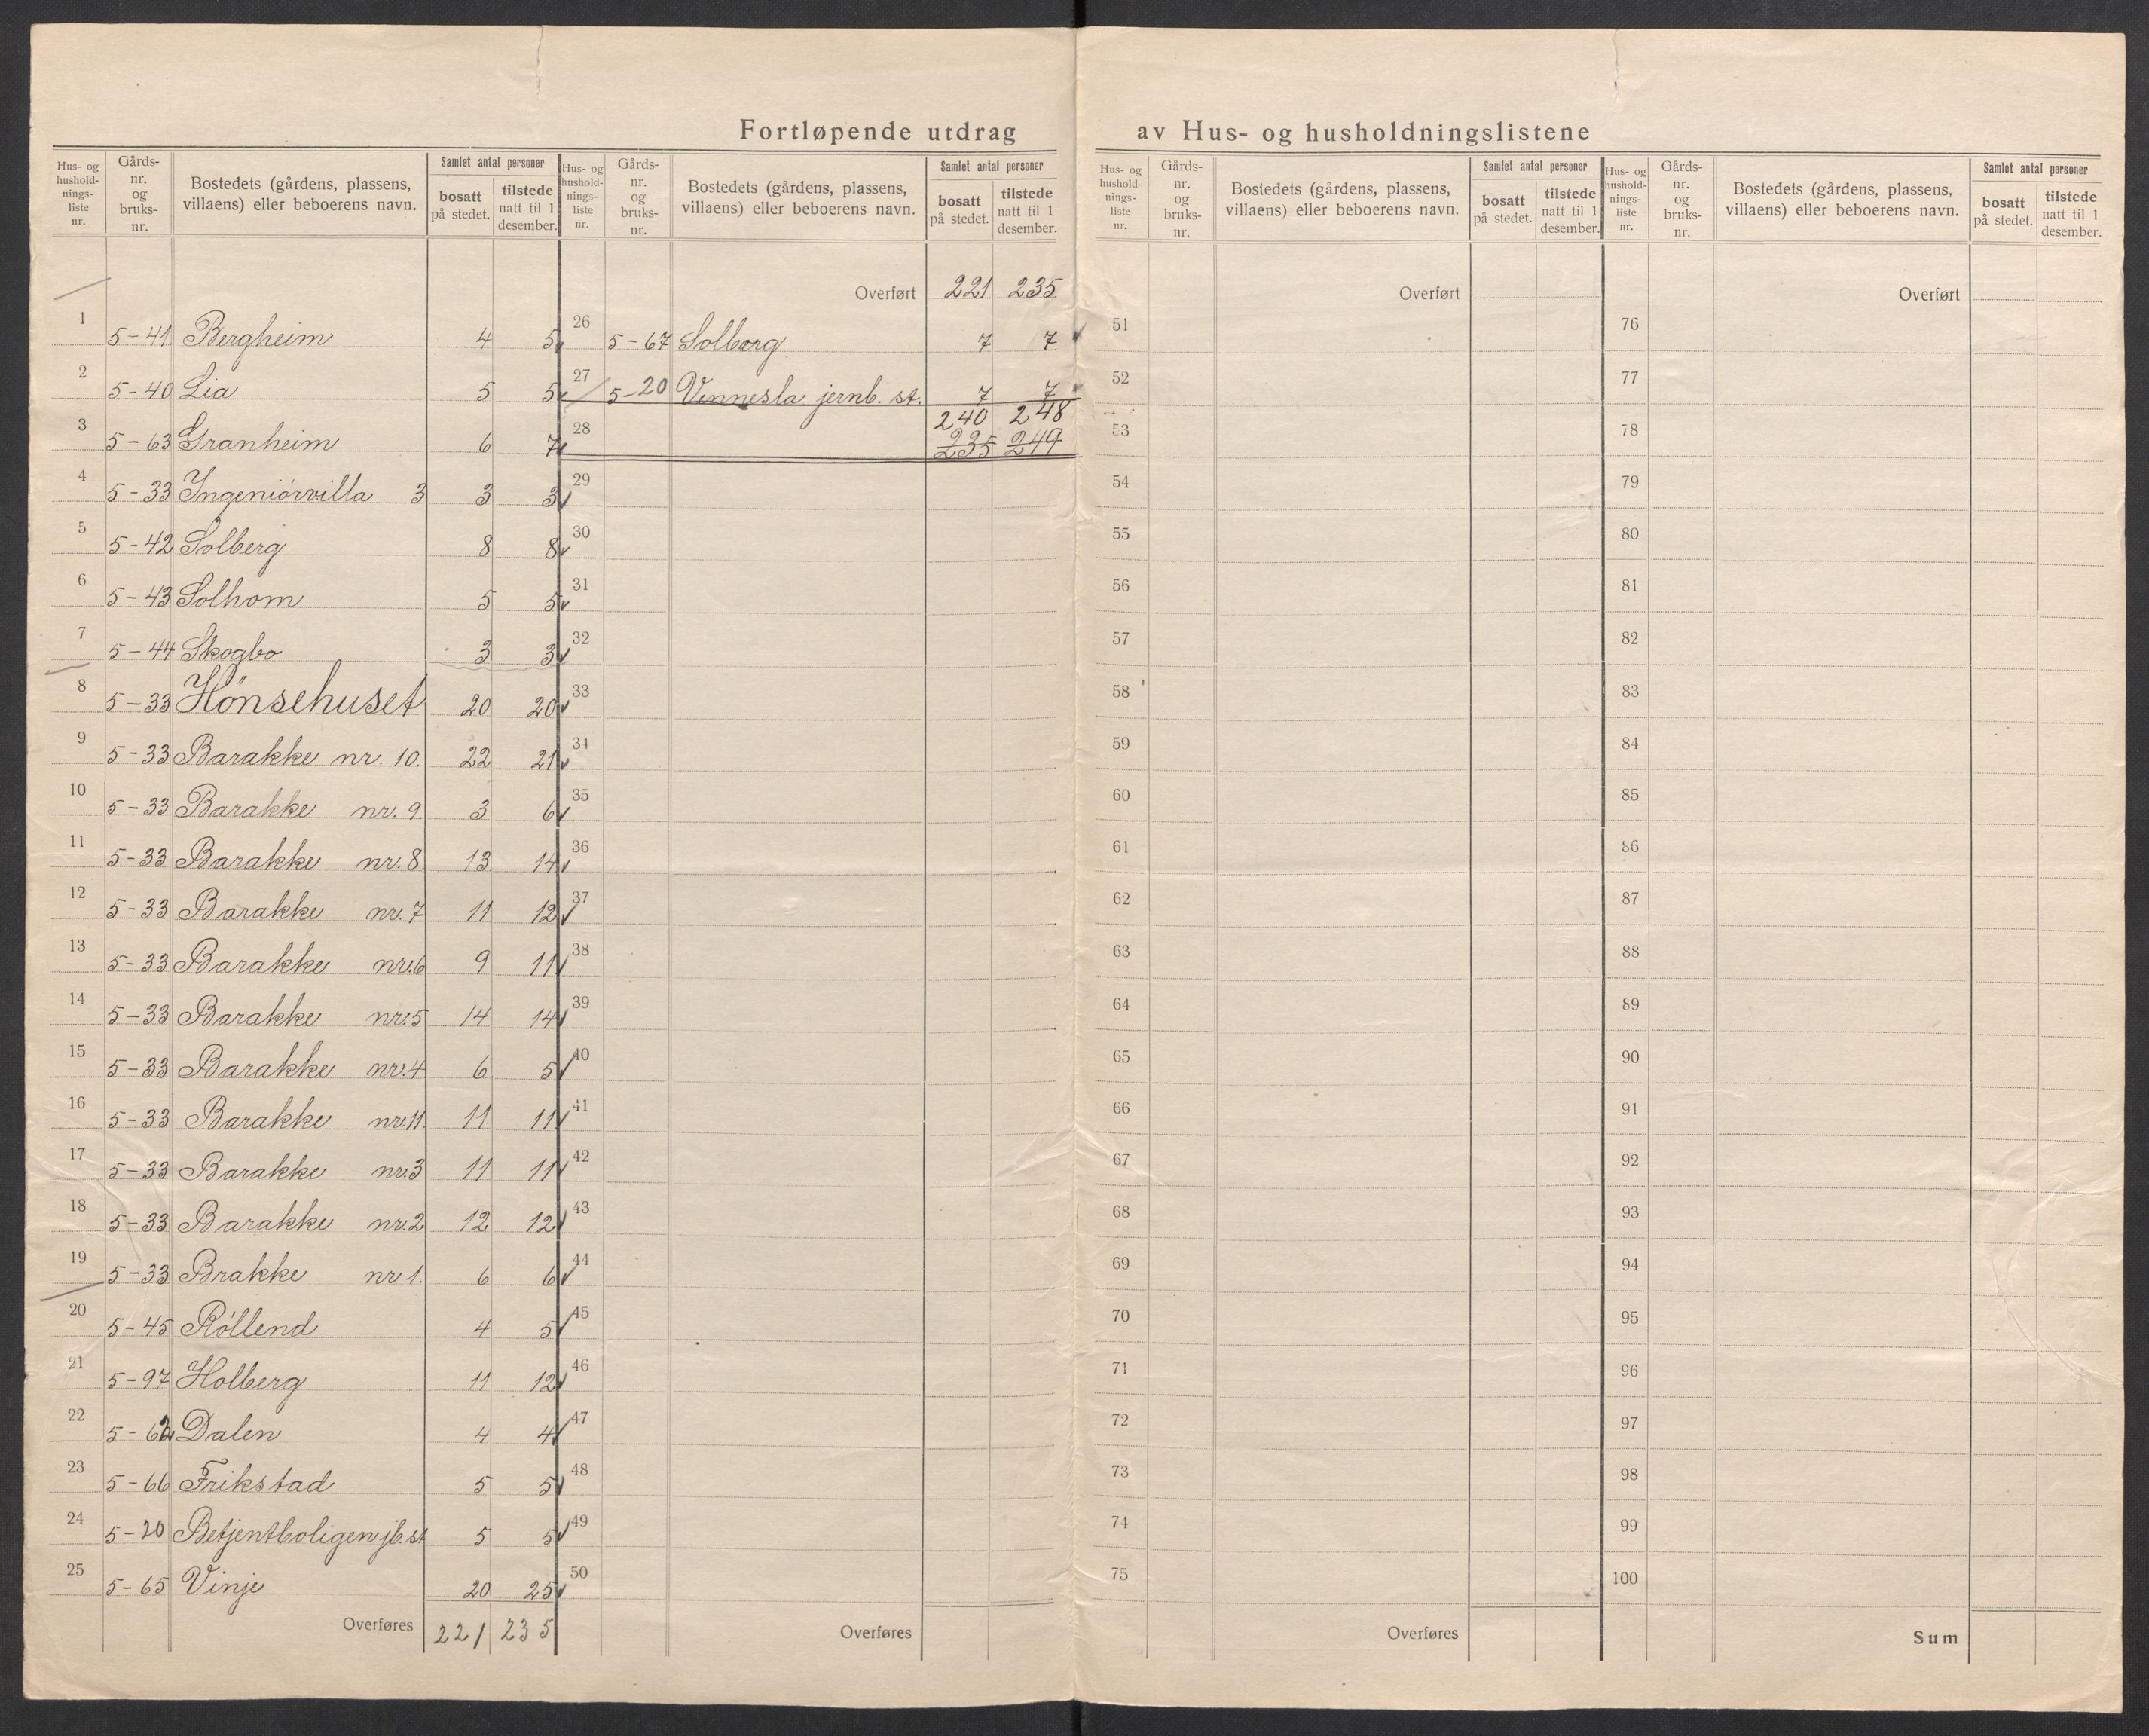 Fortløpende utdrag av Hus- og husholdningslistene
Hus- og husholdnings-liste nr. | Gårds-nr. og bruks-nr. | Bostedets (gårdens, plassens, villaens) eller beboerens navn. | Samlet antal personer bosatt på stedet. | tilstede natt til 1 desember.
1 5-41 Bergheim 4 5
2 5-40 Lia 5 5
3 5-63 Granheim 6 7
4 5-33 Ingeniörvilla 3 3 3
5 5-42 Solberg 8 8
6 5-43 Solhom 5 5
7 5-44 Skogbo 3 3
8 5-33 Hönsehuset 20 20
9 5-33 Barakke nr. 10. 22 21
10 5-33 Barakke nr. 9. 3 6
11 5-33 Barakke nr. 8 13 14
12 5-33 Barakke nr. 7 11 12
13 5-33 Barakke nr. 6 9 11
14 5-33 Barakke nr. 5 14 14
15 5-33 Barakke nr. 4 6 5
16 5-33 Barakke nr. 11. 11 11
17 5-33 Barakke nr. 3 11 11
18 5-33 Barakke nr. 2 12 12
19 5-33 Brakke nr 1. 6 6
20 5-45 Röllend 4 5
21 5-97 Holberg 11 12
22 5-62 Dalen 4 4
23 5-66 Frikstad 5 5
24 5-20 Betjentboligen jb. st 5 5
25 5-65 Vinje 20 25
Overføres 221 235
Hus- og husholdnings-liste nr. | Gårds-nr. og bruks-nr. | Bostedets (gårdens, plassens, villaens) eller beboerens navn. | Samlet antal personer bosatt på stedet. | tilstede natt til 1 desember.
Overført 221 235
26 5-67 Solborg 7 7
27 5-20 Vennesla jernb. st. 7 7
240 248
28 235 249
29
30
31
32
33
34
35
36
37
38
39
40
41
42
43
44
45
46
47
48
49
50
Overføres
Hus- og husholdnings-liste nr. | Gårds-nr. og bruks-nr. | Bostedets (gårdens, plassens, villaens) eller beboerens navn. | Samlet antal personer bosatt på stedet. | tilstede natt til 1 desember.
Overført
51
52
53
54
55
56
57
58
59
60
61
62
63
64
65
66
67
68
69
70
71
72
73
74
75
Overføres
Hus- og husholdnings-liste nr. | Gårds-nr. og bruks-nr. | Bostedets (gårdens, plassens, villaens) eller beboerens navn. | Samlet antal personer bosatt på stedet. | tilstede natt til 1 desember.
Overført
76
77
78
79
80
81
82
83
84
85
86
87
88
89
90
91
92
93
94
95
96
97
98
99
100
Sum